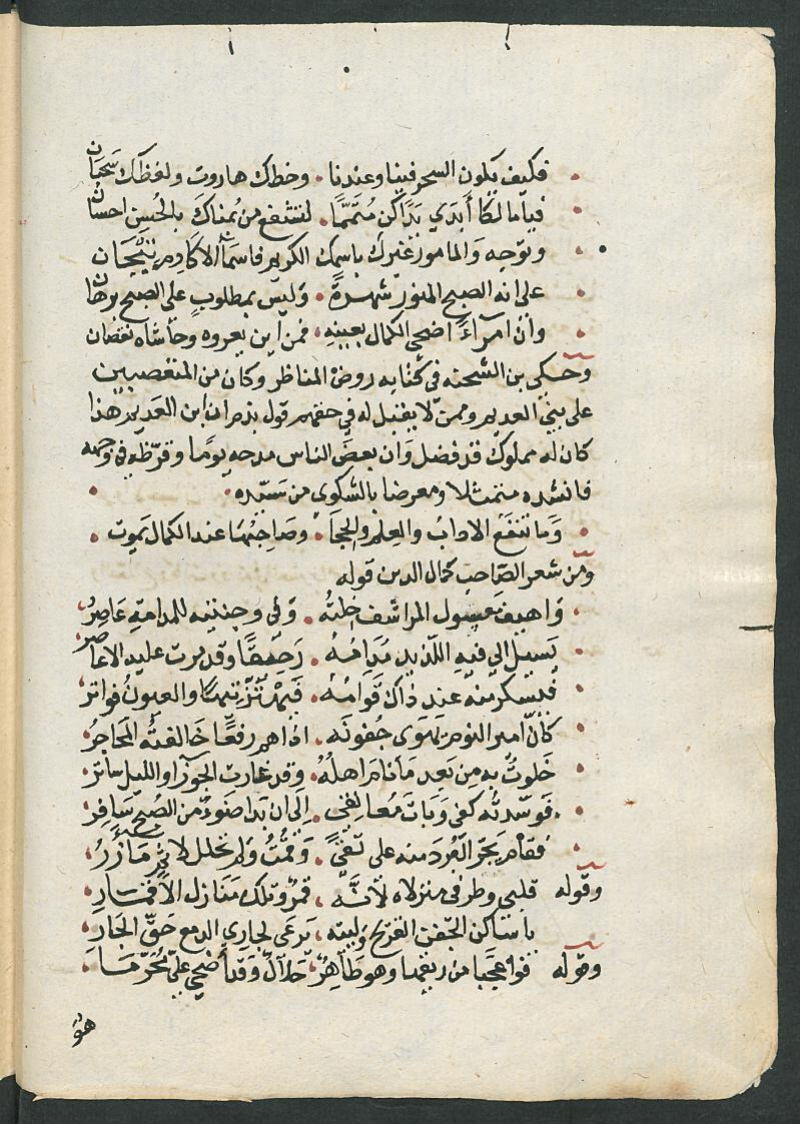 فكيف يكون السحر فينا وعندنا . وخطك هاروت ولفظك سحبان
فيا مالكا أبدي بداكن متمما . لتشفع من يمناك بالحسن احسان
وتوجه والمامور غيرك باسمك الكريم فاسما الاكارم تيجان
على انه الصبح المنور شهرة . وليس بمطلوب على الصبح برهان
وان امرأ اضحى الكمال بعينه . فمن اين يعروه وحاشاه نقصان
وحكى بن الشحنه في كتابه روض المناظر وكان من المتعصبين
على بني العديم وممن لا يقبل له في حقهم قول بذم ان ابن العديم هذا
كان له مملوك قد فضل وان بعض الناس مدحه يوما وقرظه في وجهه
فانشده متمثلا ومعرضا بالشكوى من سيده .
وما تنفع الاداب والعلم والحجا . وصاحبها عند الكمال يموت .
ومن شعر الصاحب كمال الدين قوله
واهيف معسول المراشف خلته . وفي وجنتيه للمدامة عاصر
يسيل الى فيه اللذيذ مدامه . رحيقا وقد مرت عليه الاعاصر
فيسكر منه عند ذاك قوامه . فيهتز تيها والعيون فواتر
كان امير النوم يهوى جفونه . اذا هم رفعا خالفته المحاجر
خلوت به من بعد ما نام اهله . وقد غارت الجوزا والليل ساتر
فوسدته كفي وبات معانقي . الى ان بدا ضوء من الصبح سافر
فقام يجر البرد منه على تقى . وقمت ولم تحلل لاثم مازر
وقوله قلبي وطرفي منزلاه لانه . قمر وتلك منازل الاقمار
يا ساكن الجفن القريح وليته . يرعى لجاري الدمع حق الجار
وقوله فواعجبا من ريقها وهو طاهر . حلال وقد أضحى علي محرما .
هو